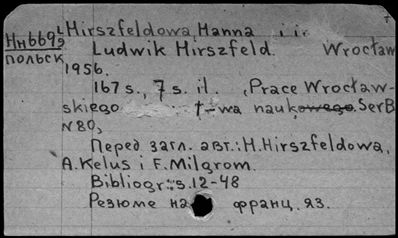 Нн669₂ Hirszfeldowa, Hanna i in.
польск Ludwik Hirszfeld. Wrocław
1956.
167 s., 7 s. il. (Prace Wrocław-
skiego t-wa naukowego. Ser B
N80)
Перед загл. авт.: H. Hirszfeldowa,
A. Kelus i F. Milgrom.
Bibliogr.: s. 12-48
Резюме на франц. яз.